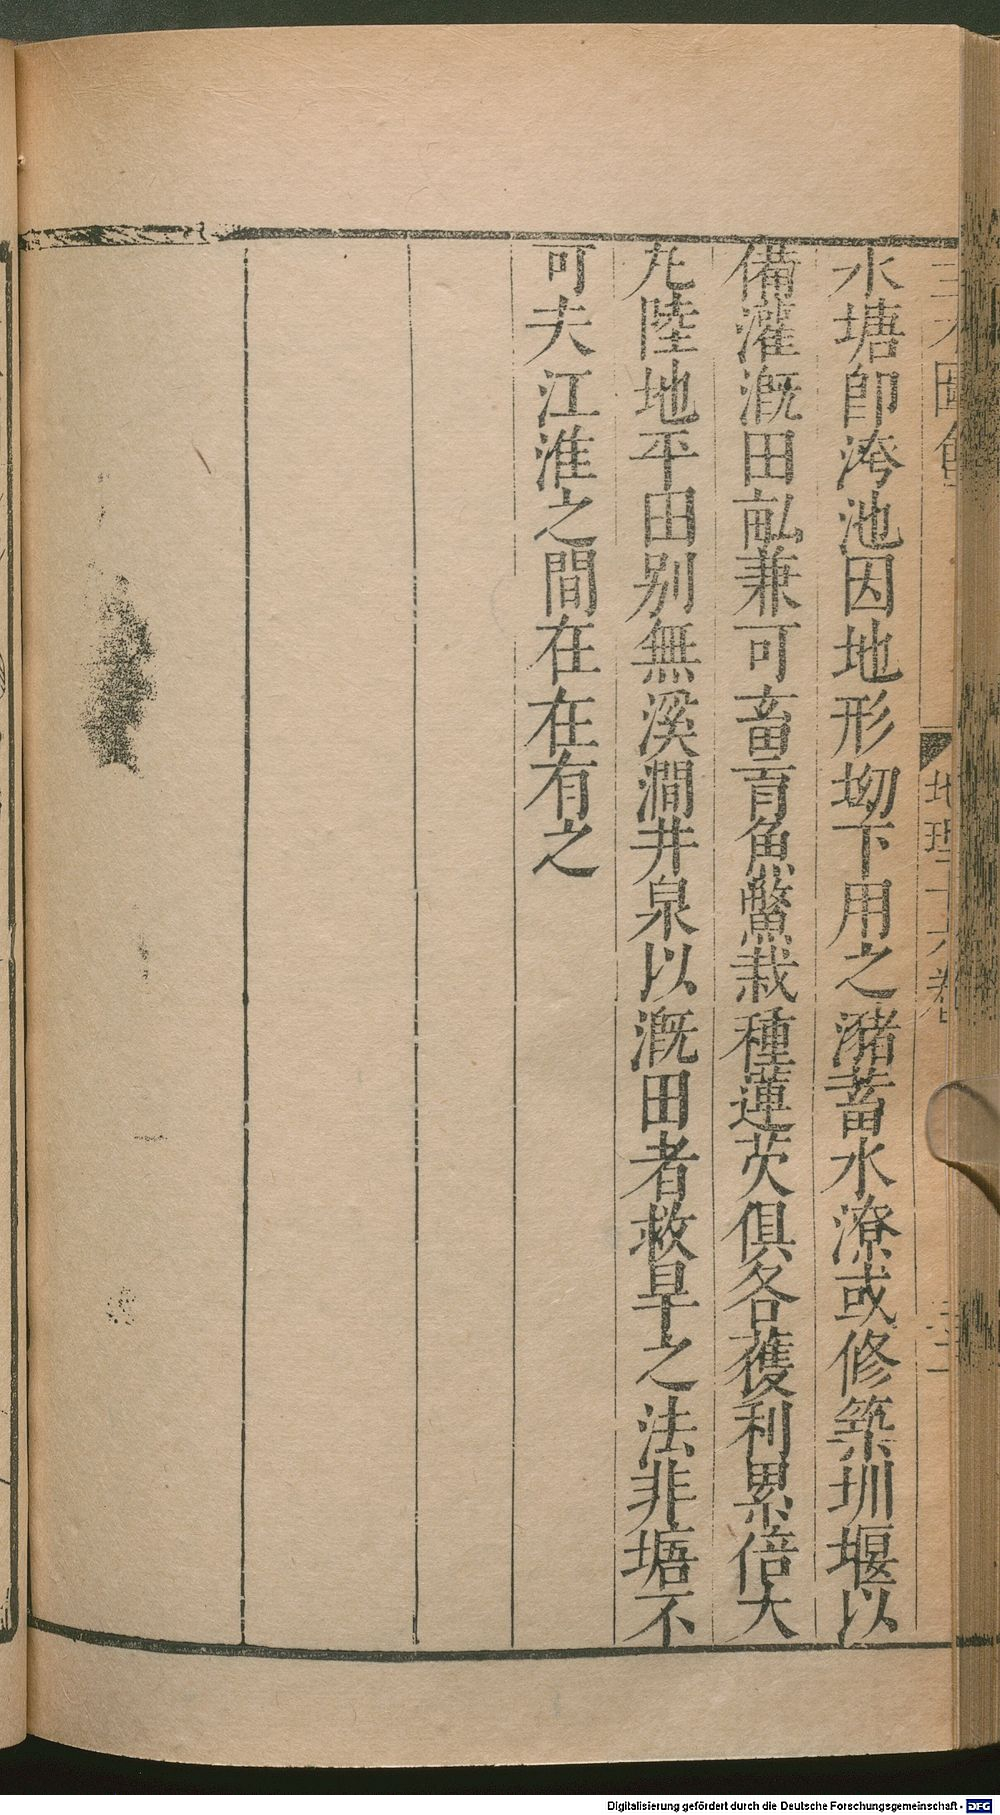 水塘卽洿池因地形坳下用之瀦蓄水潦或修築圳堰以
備灌溉田畆兼可畜育魚鱉栽種蓮芡俱各獲利累倍大
凡陸地平田别無溪澗井泉以溉田者救旱之法非塘不
可夫江淮之間在在有之
地理十六卷
Digitalisierung gefördert durch die Deutsche Forschungsgemeinschaft - DFG